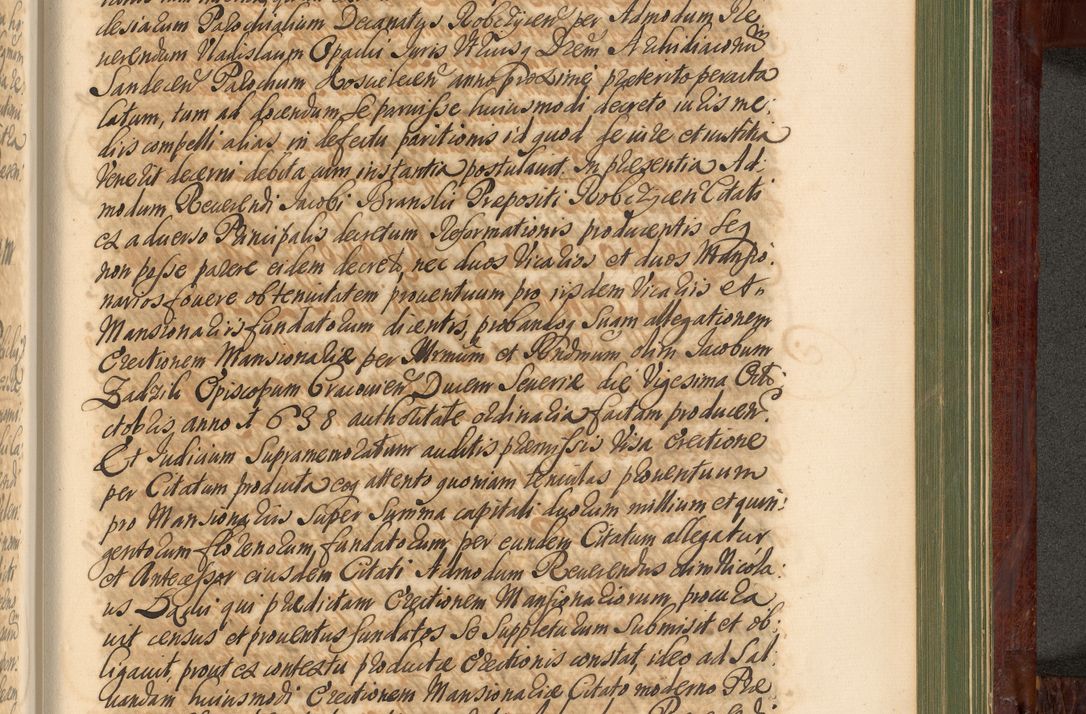 desiarum Parochialium Decanatus Robczycen per Admodum Re
uerendum Vladislaum Opacki Juris Vtriusq Drem Archidiaconum
Sandecen Parochum anno proxime præterito peracta
latum, tum ad docendum se paruisse huiusmodi decreto iuris me:
diis compelli alias, in defectu paritionis id quod de iure et iustitia
Venerit decerni debita cum instantia postulauit. In præsentia Ad:
modum Reuerendi Jacobi Branslii Præpositi Robczycen Citati
ex aduerso Principalis decretum Reformationis producentis seq
non posse parere eidem decreto, nec duos Vicarios et duos Mansio:
narios fouere ob tenuitatem prouentuum pro iisdem Vicariis et
Mansionariis fundatorum dicentis, probandoq suam allegationem
Erectionem Mansionariæ per Illrmum et Rndmum olim Jacobum
Zadzik Episcopum Cracouien Ducem Seueriæ die Vigesima Octa
ctobris anno 1638 authoritate ordinaria factam producen.
Et Judicium Supramemoratum auditis præmissis Visa Erectione
per Citatum producta eoq attento quoniam tenuitas prouentuum
pro Mansionariis super Summa capitali duorum millium et quin:
gentorum florenorum, fundatorum per eundem Citatum allegatur
et Antecessor eiusdem Citati Admodum Reuerendus olim Nicola:
us qui prædictam Erectionem Mansionariorum, procura
uit census et prouentus fundatos se suppleturum submisit et ob:
ligauit, prout ex contextu productæ Erectionis constat, ideo ad Sal
uandam huiusmodi Erectionem Mansionariæ Citato moderno Præ